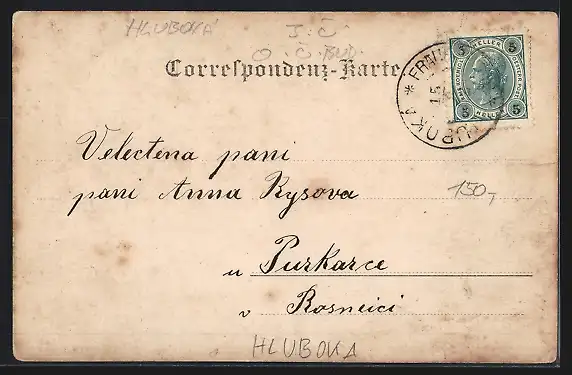 HLUBOKÁ
J. Č
O. Č. BUD.
Correspondenz-Karte
* FRAU
15
HLUBOKÁ *
5 HELLER 5
5 HELLER 5
Velectena pani
pani Anna Rysova
150,-
u Purkarce
v Rosneici
HLUBOKA